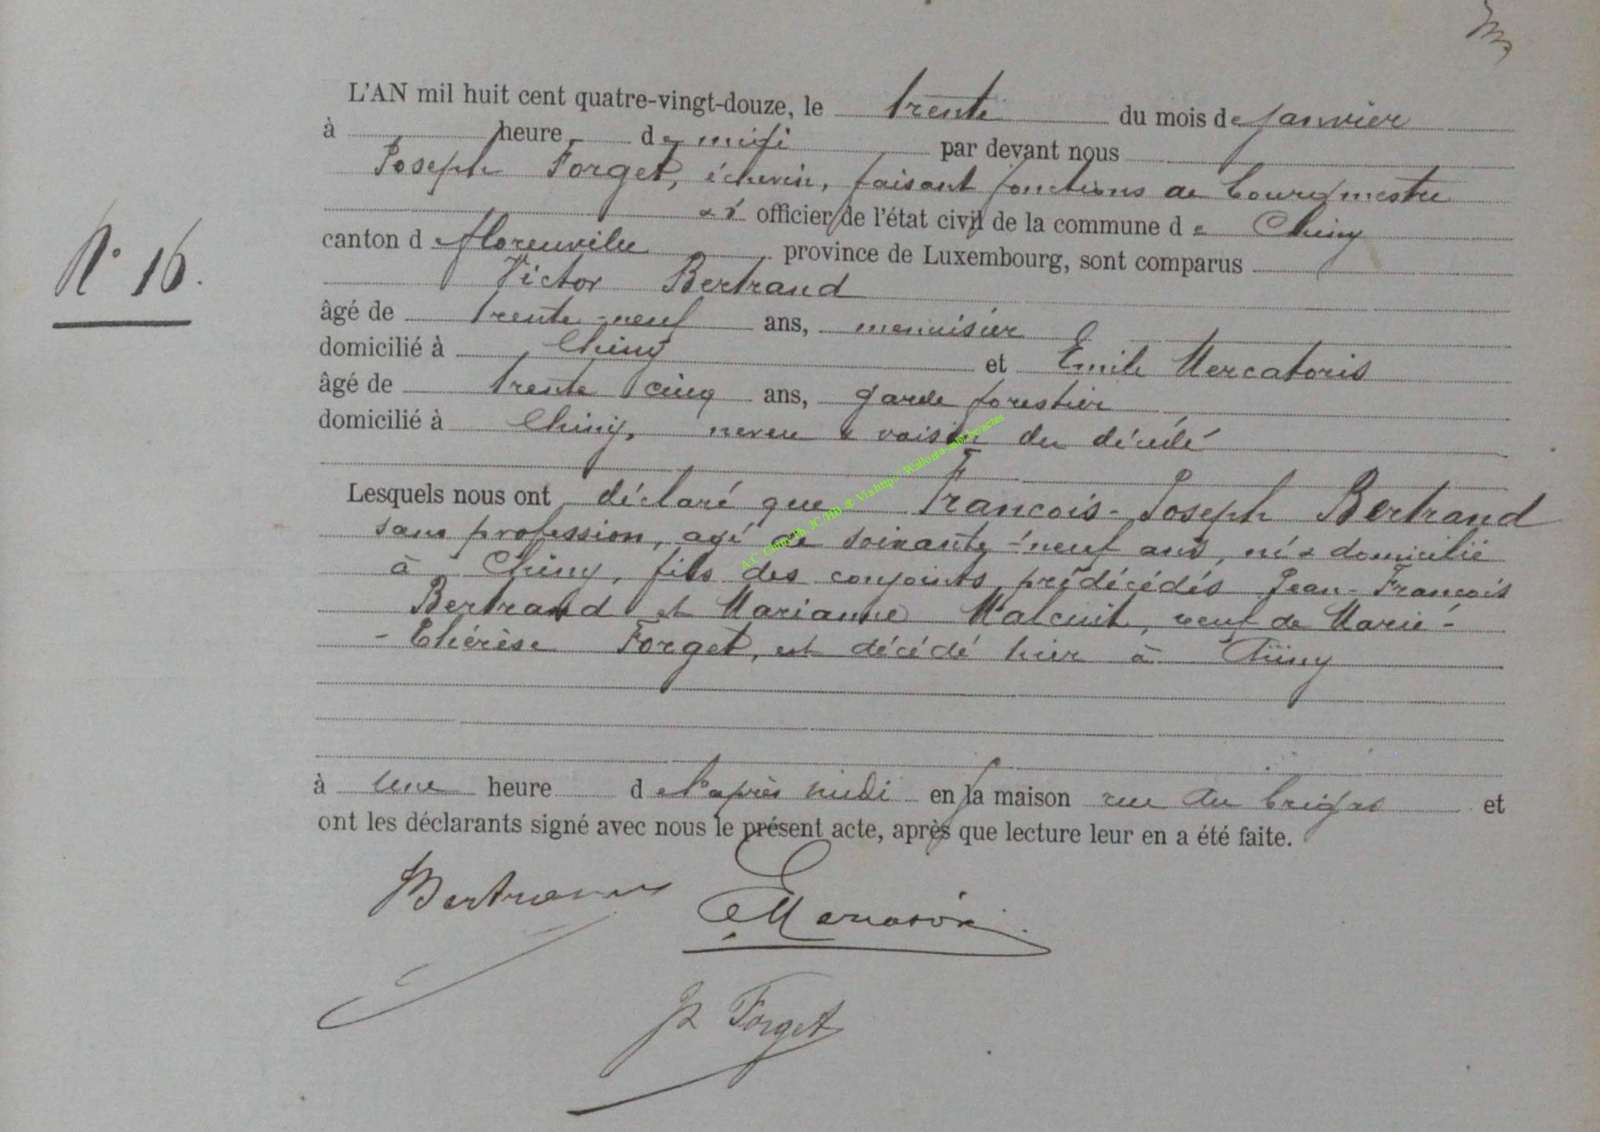 N° 16.
L'AN mil huit cent quatre-vingt-douze, le trente du mois de janvier
à heure de midi par devant nous
Joseph Forget, échevin, faisant fonctions de bourgmestre
& d' officier de l'état civil de la commune de Chiny
canton d florenville province de Luxembourg, sont comparus
Victor Bertrand
âgé de trente-neuf ans, menuisier
domicilié à Chiny et Emile Mercatoris
âgé de trente cinq ans, garde forestier
domicilié à Chiny, neveu & voisin du décédé
Lesquels nous ont déclaré que François-Joseph Bertrand
sans profession, agé de soixante-neuf ans, né & domicilié
à Chiny, fils des conjoints prédécédés Jean-François
Bertrand et Marianne Malcuit, veuf de Marie-
-Thérèse Forget, est décédé hier à Chiny
à une heure de l'après midi en sa maison rue du et
ont les déclarants signé avec nous le présent acte, après que lecture leur en a été faite.
Bertrand
J Forget